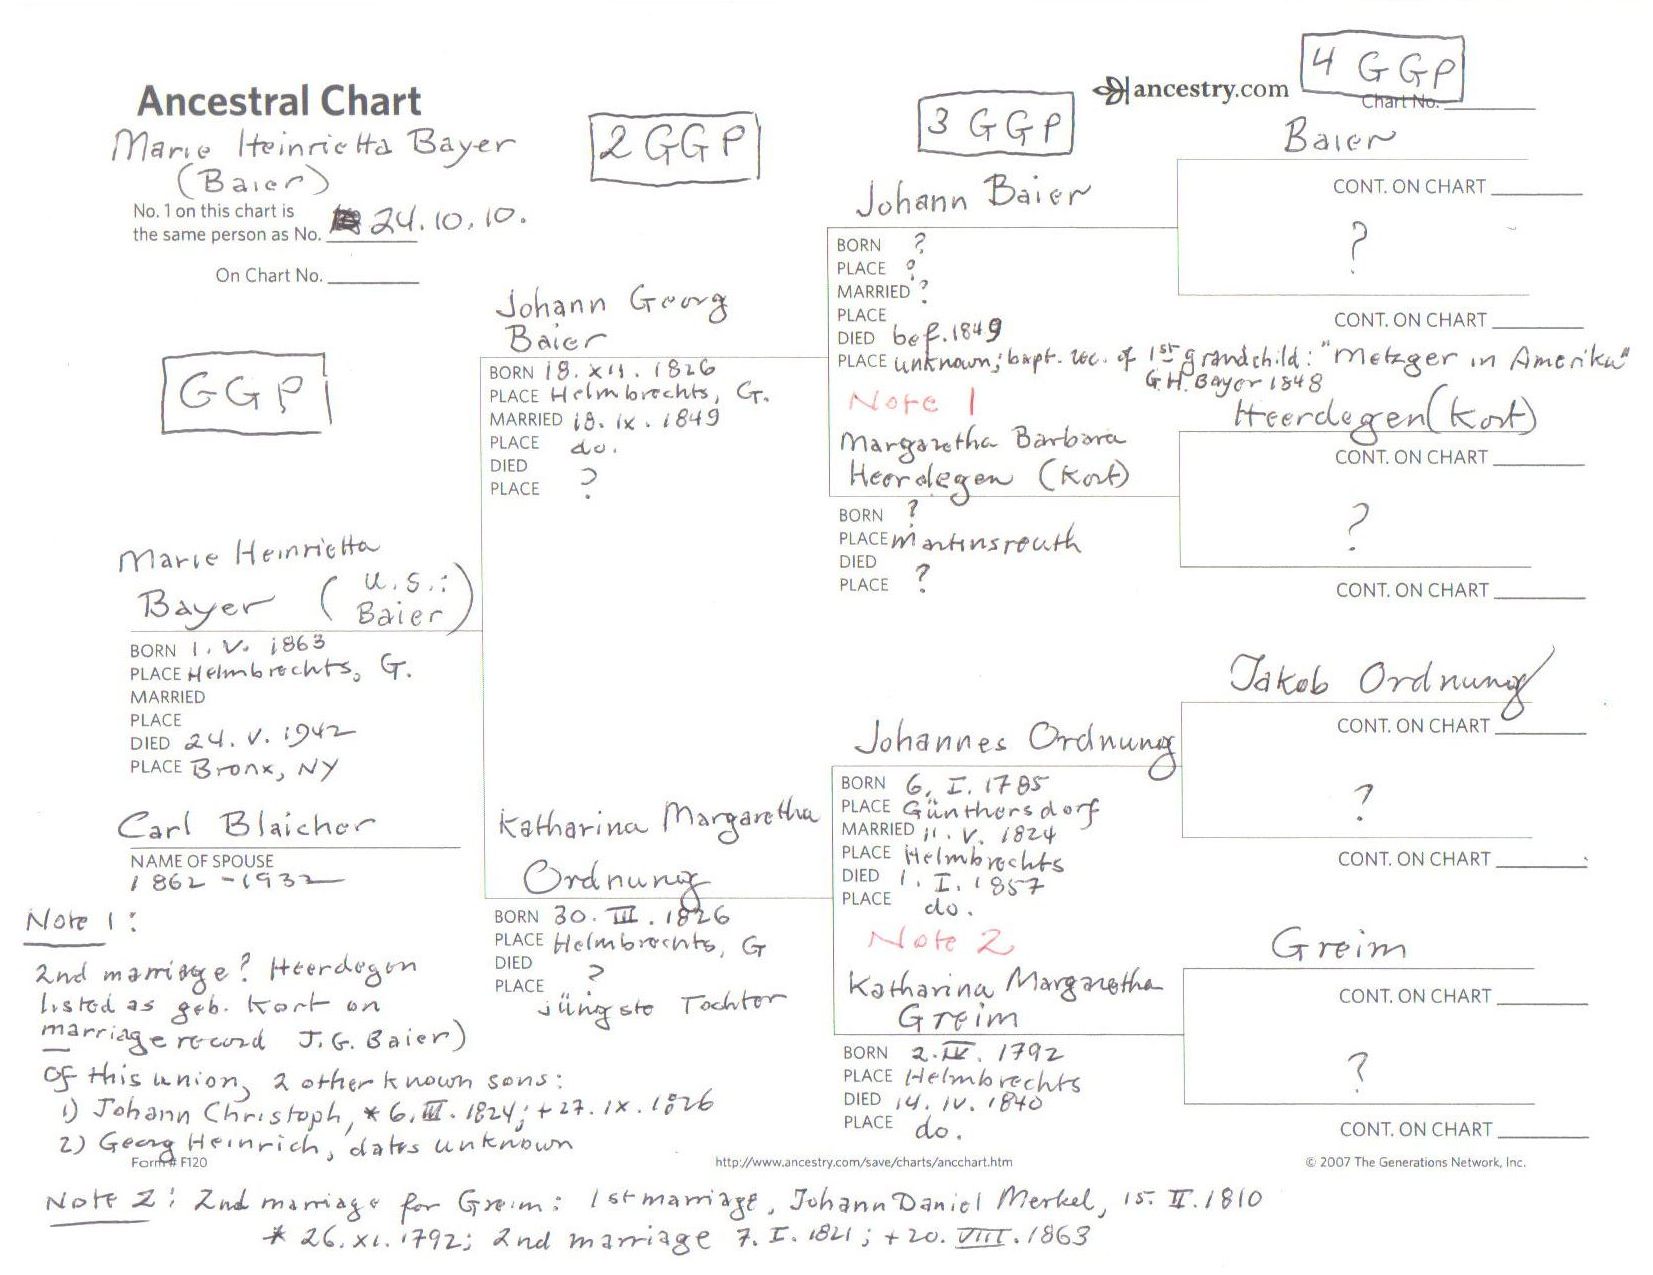 4 GGP
ancestry.com
Chart No.
Ancestral Chart
Marie Heinrietta Bayer
(Baier)
No. 1 on this chart is
the same person as No. 24.10.10.
On Chart No.
2 GGP
3 GGP
GGP
Marie Heinrietta
Bayer (U.S.:
Baier)
BORN 1. V. 1863
PLACE Helmbrechts, G.
MARRIED
PLACE
DIED 24. V. 1942
PLACE Bronx, NY
Carl Blaicher
NAME OF SPOUSE
1862 - 1932
Johann Georg
Baier
BORN 18. XII. 1826
PLACE Helmbrechts, G.
MARRIED 18. IX. 1849
PLACE do.
DIED
PLACE ?
Katharina Margaretha
Ordnung
BORN 30. III. 1826
PLACE Helmbrechts, G
DIED
PLACE ?
jüngste Tochter
Johann Baier
BORN ?
PLACE ?
MARRIED ?
PLACE
DIED bef. 1849
PLACE unknown; bapt. rec. of 1st grandchild: "Metzger in Amerika"
G.H. Bayer 1848
Note 1
Margaretha Barbara
Heerdegen (Kort)
BORN ?
PLACE Martinsreuth
DIED
PLACE ?
Johannes Ordnung
BORN 6. I. 1785
PLACE Günthersdorf
MARRIED 11. V. 1824
PLACE Helmbrechts
DIED 1. I. 1857
PLACE do.
Note 2
Katharina Margaretha
Greim
BORN 2. IV. 1792
PLACE Helmbrechts
DIED 14. IV. 1840
PLACE do.
Baier
CONT. ON CHART
?
CONT. ON CHART
Heerdegen (Kort)
CONT. ON CHART
?
CONT. ON CHART
Jakob Ordnung
CONT. ON CHART
?
CONT. ON CHART
Greim
CONT. ON CHART
?
CONT. ON CHART
Note 1:
2nd marriage? Heerdegen
listed as geb. Kort on
marriage record J.G. Baier)
Of this union, 2 other known sons:
1) Johann Christoph, * 6. III. 1824; + 27. IX. 1826
2) Georg Heinrich, dates unknown
Form # F120
http://www.ancestry.com/save/charts/ancchart.htm
© 2007 The Generations Network, Inc.
Note 2: 2nd marriage for Greim: 1st marriage, Johann Daniel Merkel, 15. II. 1810
* 26. XI. 1792; 2nd marriage 7. I. 1821; + 20. VIII. 1863